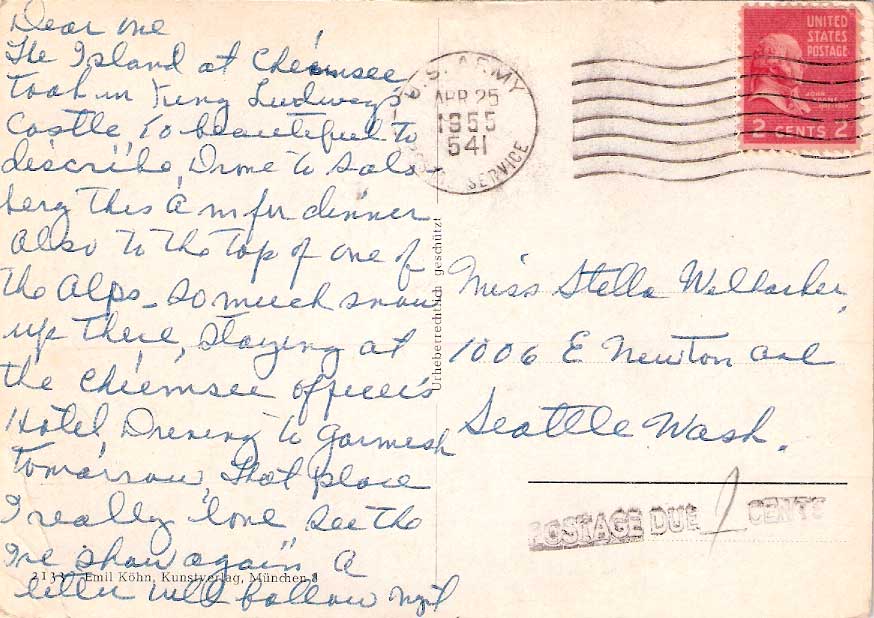 Dear one
The Island at Chiemsee
Took in King Ludwig's
Castle, To beautiful to
describe, Drove to Salz-
berg this A m for dinner
Also to the top of one of
the Alps - so much snow
up there, staying at
the Chiemsee officer's
Hotel, Driving to Garmesh
Tomorrow, that place
I really love see the
Ice show again A
letter will follow
2133 Emil Köhn, Kunstverlag, München 8
Urheberrechtlich geschützt
U.S. ARMY
APR 25
1955
541
SERVICE
UNITED
STATES
POSTAGE
JOHN
ADAMS
2 CENTS 2
Miss Stella
1006 E Newton Ave
Seattle Wash.
POSTAGE DUE CENTS